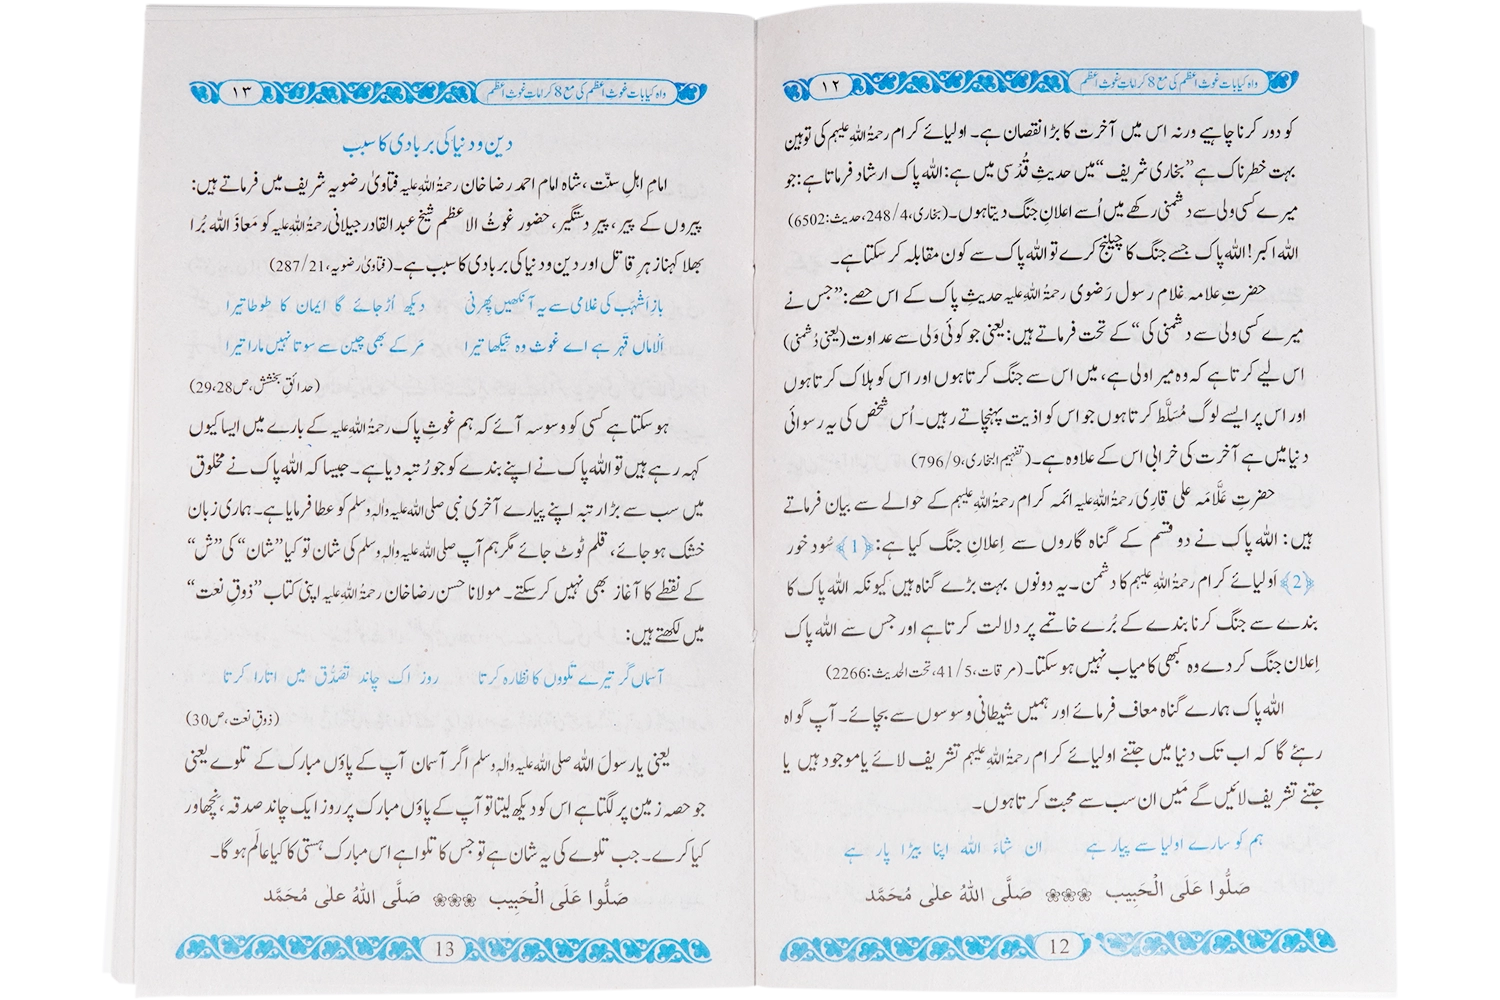 واہ کیا بات غوثِ اعظم کی مع 8 کراماتِ غوثِ اعظم
۱۲
کو دور کرنا چاہیے ورنہ اس میں آخرت کا بڑا نقصان ہے۔ اولیائے کرام رحمۃُ اللہِ علیہم کی توہین
بہت خطرناک ہے ”بخاری شریف“ میں حدیثِ قُدْسی میں ہے: اللہ پاک ارشاد فرماتا ہے: جو
میرے کسی ولی سے دشمنی رکھے میں اُسے اعلانِ جنگ دیتا ہوں۔ (بخاری، 4/248، حدیث: 6502)
اللہ اکبر! اللہ پاک جسے جنگ کا چیلنج کرے تو اللہ پاک سے کون مقابلہ کر سکتا ہے۔
حضرتِ علامہ غلام رسول رَضوی رحمۃُ اللہِ علیہ حدیثِ پاک کے اس حصے: ”جس نے
میرے کسی ولی سے دشمنی کی“ کے تحت فرماتے ہیں: یعنی جو کوئی وَلی سے عداوت (یعنی دُشمنی)
اس لیے کرتا ہے کہ وہ میرا ولی ہے، میں اس سے جنگ کرتا ہوں اور اس کو ہلاک کرتا ہوں
اور اس پر ایسے لوگ مُسَلَّط کرتا ہوں جو اس کو اذیت پہنچاتے رہیں۔ اُس شخص کی یہ رسوائی
دنیا میں ہے آخرت کی خرابی اس کے علاوہ ہے۔ (تفہیم البخاری، 9/796)
حضرتِ عَلَّامَہ علی قاری رحمۃُ اللہِ علیہ ائمہ کرام رحمۃُ اللہِ علیہم کے حوالے سے بیان فرماتے
ہیں: اللہ پاک نے دو قسم کے گناہ گاروں سے اِعلانِ جنگ کیا ہے: ﴿1﴾ سُود خور
﴿2﴾ اَولیائے کرام رحمۃُ اللہِ علیہم کا دشمن۔ یہ دونوں بہت بڑے گناہ ہیں کیونکہ اللہ پاک کا
بندے سے جنگ کرنا بندے کے بُرے خاتمے پر دلالت کرتا ہے اور جس سے اللہ پاک
اِعلان جنگ کر دے وہ کبھی کامیاب نہیں ہو سکتا۔ (مرقات، 5/41، تحت الحدیث: 2266)
اللہ پاک ہمارے گناہ معاف فرمائے اور ہمیں شیطانی وسوسوں سے بچائے۔ آپ گواہ
رہئے گا کہ اب تک دنیا میں جتنے اولیائے کرام رحمۃُ اللہِ علیہم تشریف لائے یا موجود ہیں یا
جتنے تشریف لائیں گے مَیں ان سب سے محبت کرتا ہوں۔
ہم کو سارے اولیا سے پیار ہے ان شاءَ اللہ اپنا بیڑا پار ہے
صَلُّوا عَلَى الْحَبِيب ❀❀❀ صَلَّى اللهُ عَلٰى مُحَمَّد
12
واہ کیا بات غوثِ اعظم کی مع 8 کراماتِ غوثِ اعظم
۱۳
دین و دنیا کی بربادی کا سبب
امامِ اہلِ سنّت، شاہ امام احمد رضا خان رحمۃُ اللہِ علیہ فتاویٰ رضویہ شریف میں فرماتے ہیں:
پیروں کے پیر، پیرِ دستگیر، حضور غوثُ الاعظم شیخ عبد القادر جیلانی رحمۃُ اللہِ علیہ کو معاذَ اللہ بُرا
بھلا کہنا زہرِ قاتل اور دین و دنیا کی بربادی کا سبب ہے۔ (فتاویٰ رضویہ، 21/287)
بازِ اَشْہَب کی غلامی سے یہ آنکھیں پھرنی دیکھ اُڑ جائے گا ایمان کا طوطا تیرا
اَلْاَماں قَہر ہے اے غوث وہ تِیکھا تیرا مَر کے بھی چین سے سوتا نہیں مارا تیرا
(حدائقِ بخشش، ص28، 29)
ہو سکتا ہے کسی کو وسوسہ آئے کہ ہم غوثِ پاک رحمۃُ اللہِ علیہ کے بارے میں ایسا کیوں
کہہ رہے ہیں تو اللہ پاک نے اپنے بندے کو جو رُتبہ دیا ہے۔ جیسا کہ اللہ پاک نے مخلوق
میں سب سے بڑا رتبہ اپنے پیارے آخری نبی صلی اللہ علیہ واٰلہٖ وسلم کو عطا فرمایا ہے۔ ہماری زبان
خشک ہو جائے، قلم ٹوٹ جائے مگر ہم آپ صلی اللہ علیہ واٰلہٖ وسلم کی شان تو کیا ”شان“ کی ”ش“
کے نقطے کا آغاز بھی نہیں کر سکتے۔ مولانا حسن رضا خان رحمۃُ اللہِ علیہ اپنی کتاب ”ذوقِ نعت“
میں لکھتے ہیں:
آسماں گر تیرے تلووں کا نظارہ کرتا روز اک چاند تَصَدُّق میں اتارا کرتا
(ذوقِ نعت، ص30)
یعنی یارسولَ اللہ صلی اللہ علیہ واٰلہٖ وسلم اگر آسمان آپ کے پاؤں مبارک کے تلوے یعنی
جو حصہ زمین پر لگتا ہے اس کو دیکھ لیتا تو آپ کے پاؤں مبارک پر روز ایک چاند صدقہ، نچھاور
کیا کرے۔ جب تلوے کی یہ شان ہے تو جس کا تلوا ہے اس مبارک ہستی کا کیا عالَم ہو گا۔
صَلُّوا عَلَى الْحَبِيب ❀❀❀ صَلَّى اللهُ عَلٰى مُحَمَّد
13